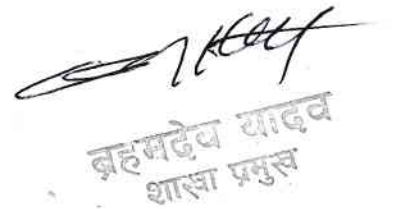 ब्रहमदेव यादव
शाखा प्रमुख